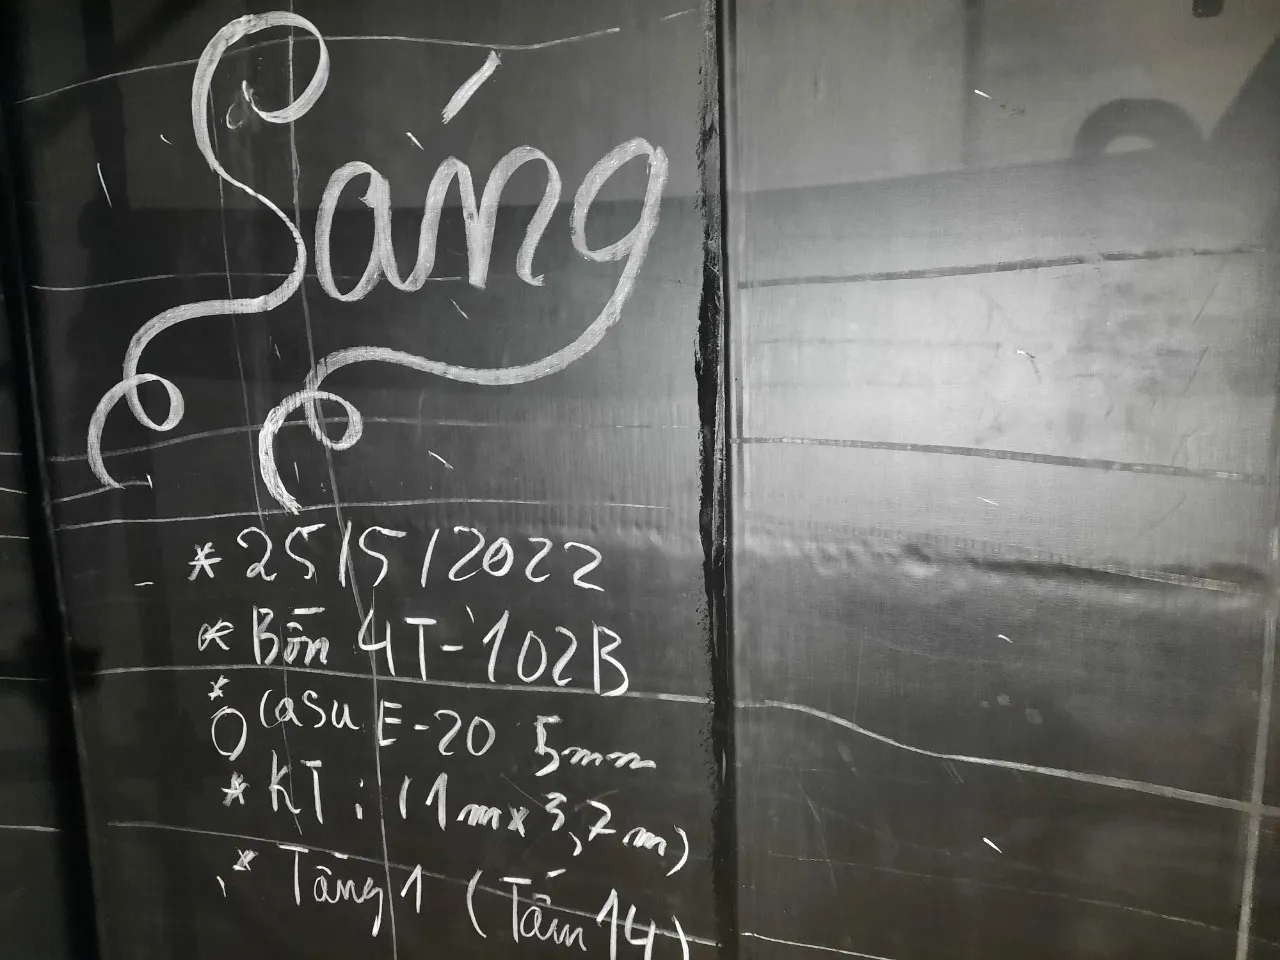 Sáng
* 25/5/2022
* Bồn 4T-102B
* Casu E-20 5mm
* KT: (1m x 3,7m)
* Tầng 1 (Tấm 14)